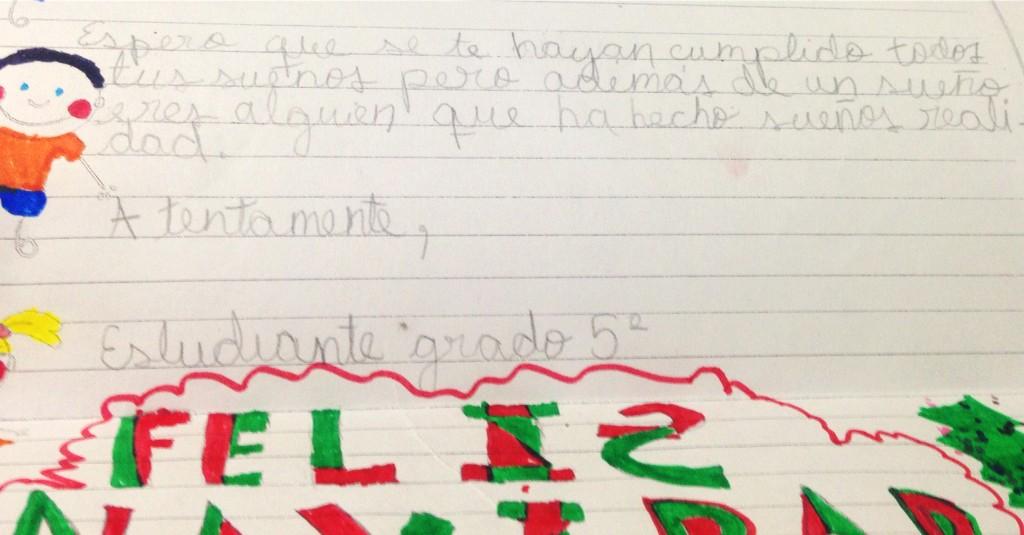 Espero que se te hayan cumplido todos
tus sueños pero además de un sueño
eres alguien que ha hecho sueños reali-
dad.
Atentamente,
Estudiante grado 5º
FELIZ
NAVIDAD